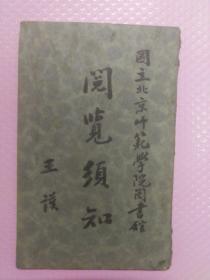 國立北京師範學院圖書館
閱覽須知
王護